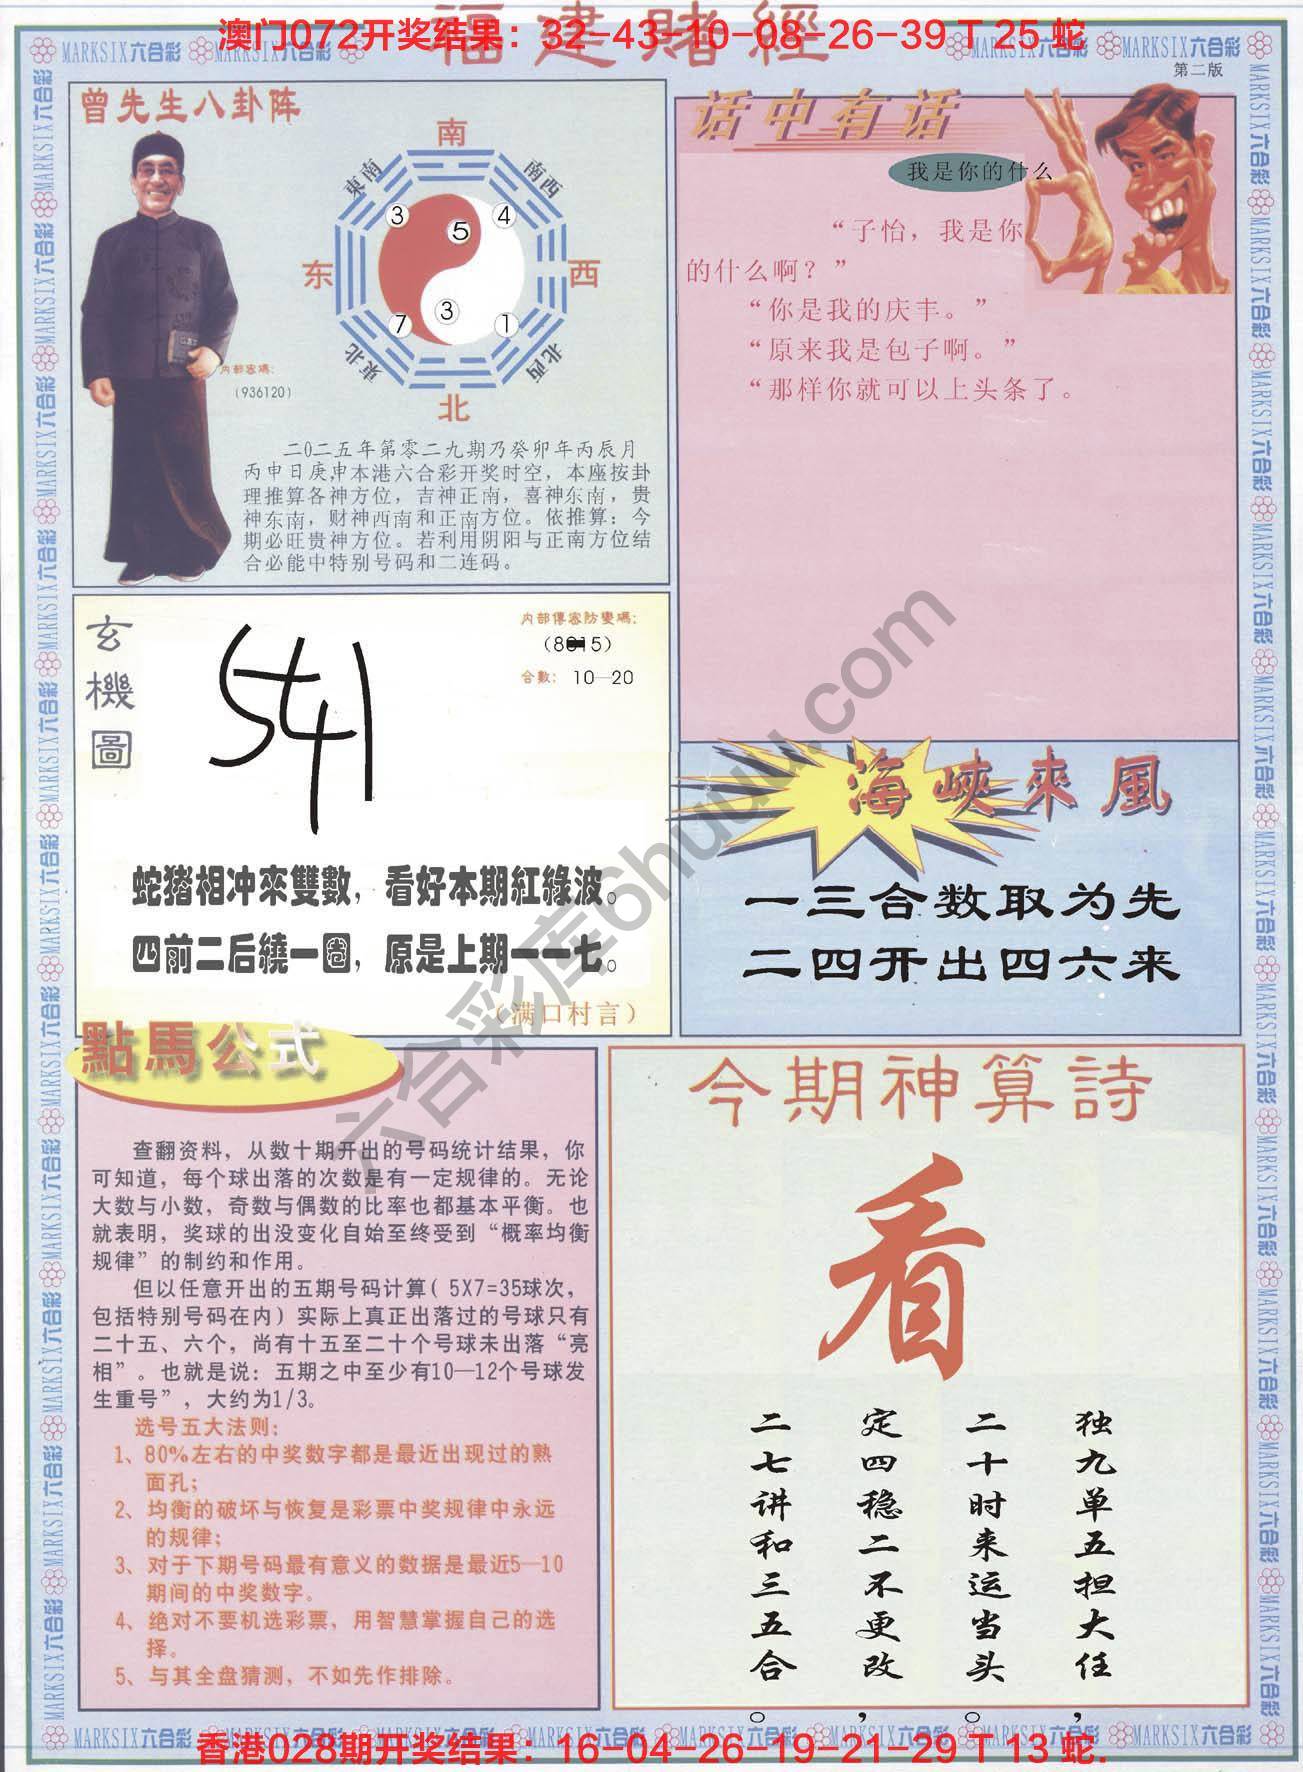 福建賭經
澳门072开奖结果：32-43-10-08-26-39 T 25 蛇
MARKSIX六合彩
第二版
曾先生八卦阵
南
東南
南西
3
4
5
东
西
3
7
1
東北
北西
北
内部密碼：
(936120)
二0二五年第零二九期乃癸卯年丙辰月
丙申日庚申本港六合彩开奖时空，本座按卦
理推算各神方位，吉神正南，喜神东南，贵
神东南，财神西南和正南方位。依推算：今
期必旺贵神方位。若利用阴阳与正南方位结
合必能中特别号码和二连码。
话中有话
我是你的什么
“子怡，我是你
的什么啊？”
“你是我的庆丰。”
“原来我是包子啊。”
“那样你就可以上头条了。
玄機圖
541
内部傳密防變碼：
合數： 10—20
蛇猪相冲來雙數，看好本期紅綠波。
四前二后繞一圈，原是上期一一七。
（满口村言）
海峽來風
一三合数取为先
二四开出四六来
點馬公式
查翻资料，从数十期开出的号码统计结果，你
可知道，每个球出落的次数是有一定规律的。无论
大数与小数，奇数与偶数的比率也都基本平衡。也
就表明，奖球的出没变化自始至终受到“概率均衡
规律”的制约和作用。
但以任意开出的五期号码计算( 5X7=35球次，
包括特别号码在内）实际上真正出落过的号球只有
二十五、六个，尚有十五至二十个号球未出落“亮
相”。也就是说：五期之中至少有10—12个号球发
生重号”，大约为1/3。
选号五大法则：
1、80%左右的中奖数字都是最近出现过的熟
面孔；
2、均衡的破坏与恢复是彩票中奖规律中永远
的规律；
3、对于下期号码最有意义的数据是最近5—10
期间的中奖数字。
4、绝对不要机选彩票，用智慧掌握自己的选
择。
5、与其全盘猜测，不如先作排除。
今期神算詩
看
独九单五担大任，
二十时来运当头。
定四稳二不更改，
二七讲和三五合。
六合彩库6huuu.com
香港028期开奖结果：16-04-26-19-21-29 T 13 蛇.